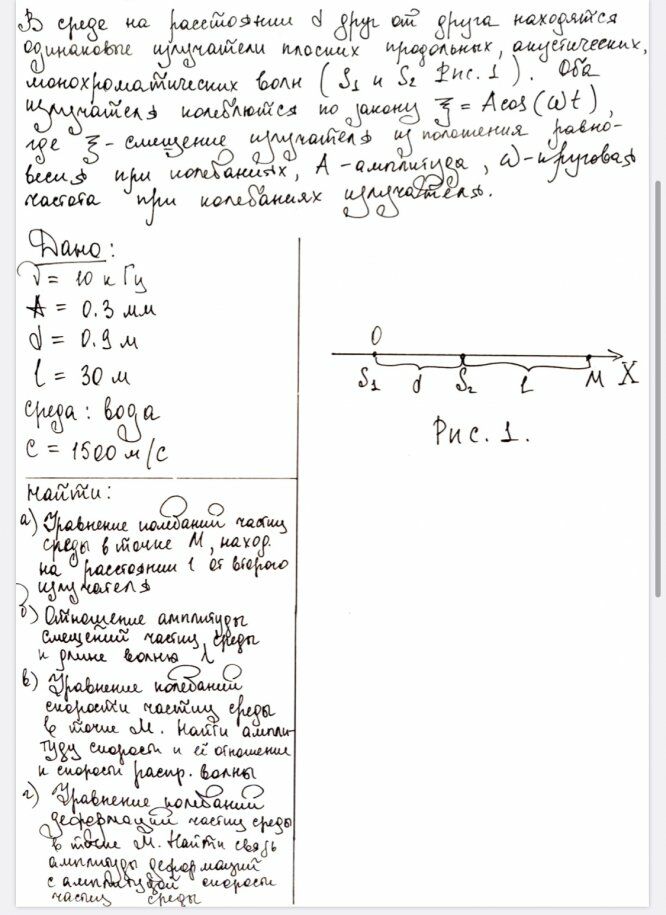 В среде на расстоянии d друг от друга находятся
одинаковые излучатели плоских продольных, акустических,
монохроматических волн ( S₁ и S₂ Рис. 1 ). Оба
излучателя колеблются по закону ξ = A cos (ωt),
где ξ - смещение излучателя из положения равно-
весия при колебаниях, A - амплитуда, ω - круговая
частота при колебаниях излучателя.
Дано:
ν = 10 кГц
A = 0.3 мм
d = 0.9 м
l = 30 м
среда: вода
c = 1500 м/с
O
S₁ d S₂ l M X
Рис. 1.
Найти:
а) Уравнение колебаний частиц
среды в точке M, наход.
на расстоянии l от второго
излучателя
б) Отношение амплитуды
смещений частиц среды
к длине волны λ
в) Уравнение колебаний
скорости частиц среды
в точке M. Найти ампли-
туду скорости и её отношение
к скорости распр. волны
г) Уравнение колебаний
деформаций частиц среды
в точке M. Найти связь
амплитуды деформаций
с амплитудой скорости
частиц среды